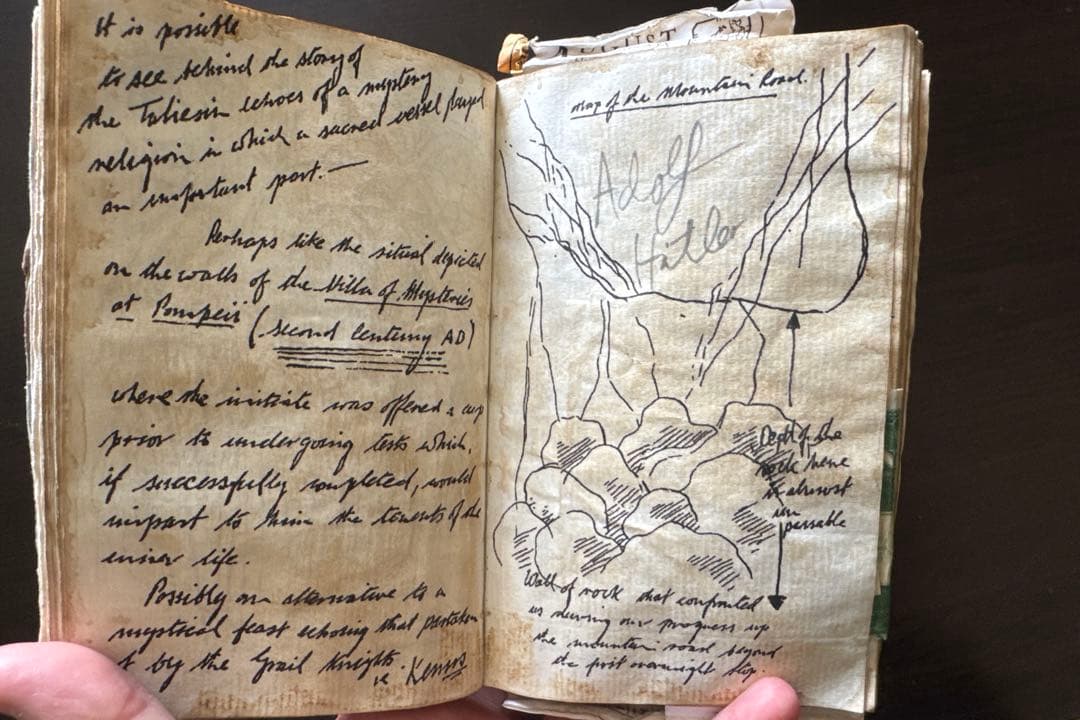 It is possible
to see behind the story of
the Taliesin echoes of a mystery
religion in which a sacred vessel played
an important part.—
Perhaps like the ritual depicted
on the walls of the Villa of Mysteries
at Pompeii (second Century AD)
where the initiate was offered a cup
prior to undergoing tests which,
if successfully completed, would
impart to him the tenents of the
inner life.
Possibly an alternative to a
mystical feast echoing that partaken
of by the Grail Knights.
ie Kernos
AUGUST
Map of the Mountain Road.
Adolf
Hitler
Depth of the
rock here
is almost
im
passable
Wall of rock that confronted
us during our progress up
the mountain road beyond
the first overnight stop.